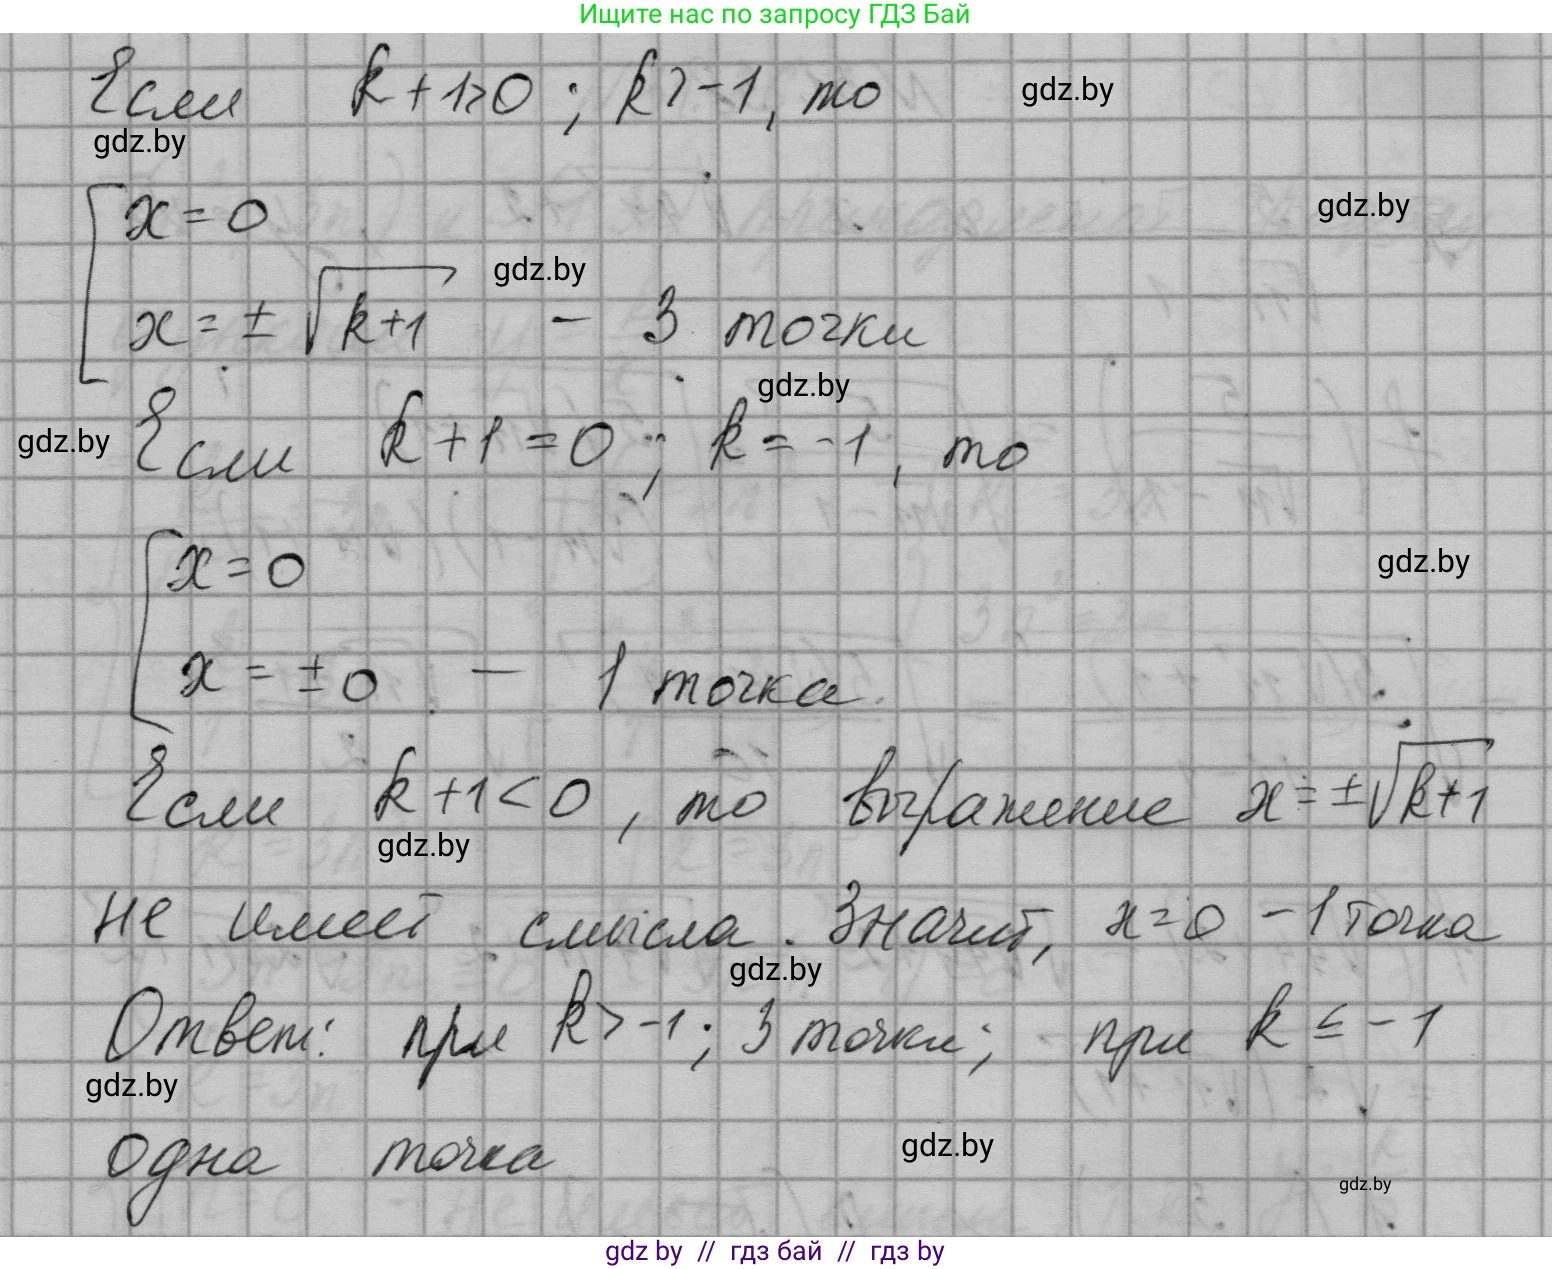 Ищите нас по запросу ГДЗ Бай
Если k+1>0 ; k>-1, то
gdz.by
gdz.by
x=0
gdz.by
gdz.by
x=±√k+1 - 3 точки
gdz.by
gdz.by
Если k+1=0 ; k=-1, то
x=0
gdz.by
x=±0 - 1 точка.
Если k+1<0, то выражение x=±√k+1
gdz.by
не имеет смысла. Значит, x=0 - 1 точка
gdz.by
Ответ: при k>-1; 3 точки; при k≤-1
gdz.by
одна точка
gdz.by
gdz.by
gdz by // гдз бай // гдз by